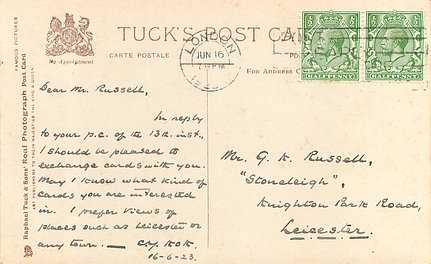 TUCK'S POST CARD
CARTE POSTALE
By Appointment
FAMOUS PICTURES
Raphael Tuck & Sons' Real Photograph Post Card
ART PUBLISHERS TO THEIR MAJESTIES THE KING & QUEEN
For Address O
LONDON
JUN 16
HALFPENNY
HALFPENNY
Dear Mr. Russell,
In reply
to your p.c. of the 13th inst.,
I should be pleased to
exchange cards with you.
May I know what kind of
cards you are interested
in. I prefer views of
places such as Leicester or
any town. —
16-6-23.
Mr. G. K. Russell,
"Stoneleigh",
Knighton Park Road,
Leicester.